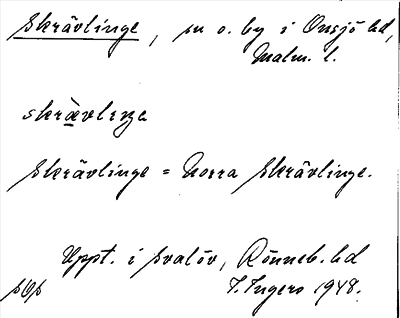 Skrävlinge, sn o. by i Onsjö hd,
Malm. l.
skrä̀vlıŋe
Skrävlinge = Norra Skrävlinge.
Uppt. i Svalöv, Rönneb. hd
I. Ingers 1948.